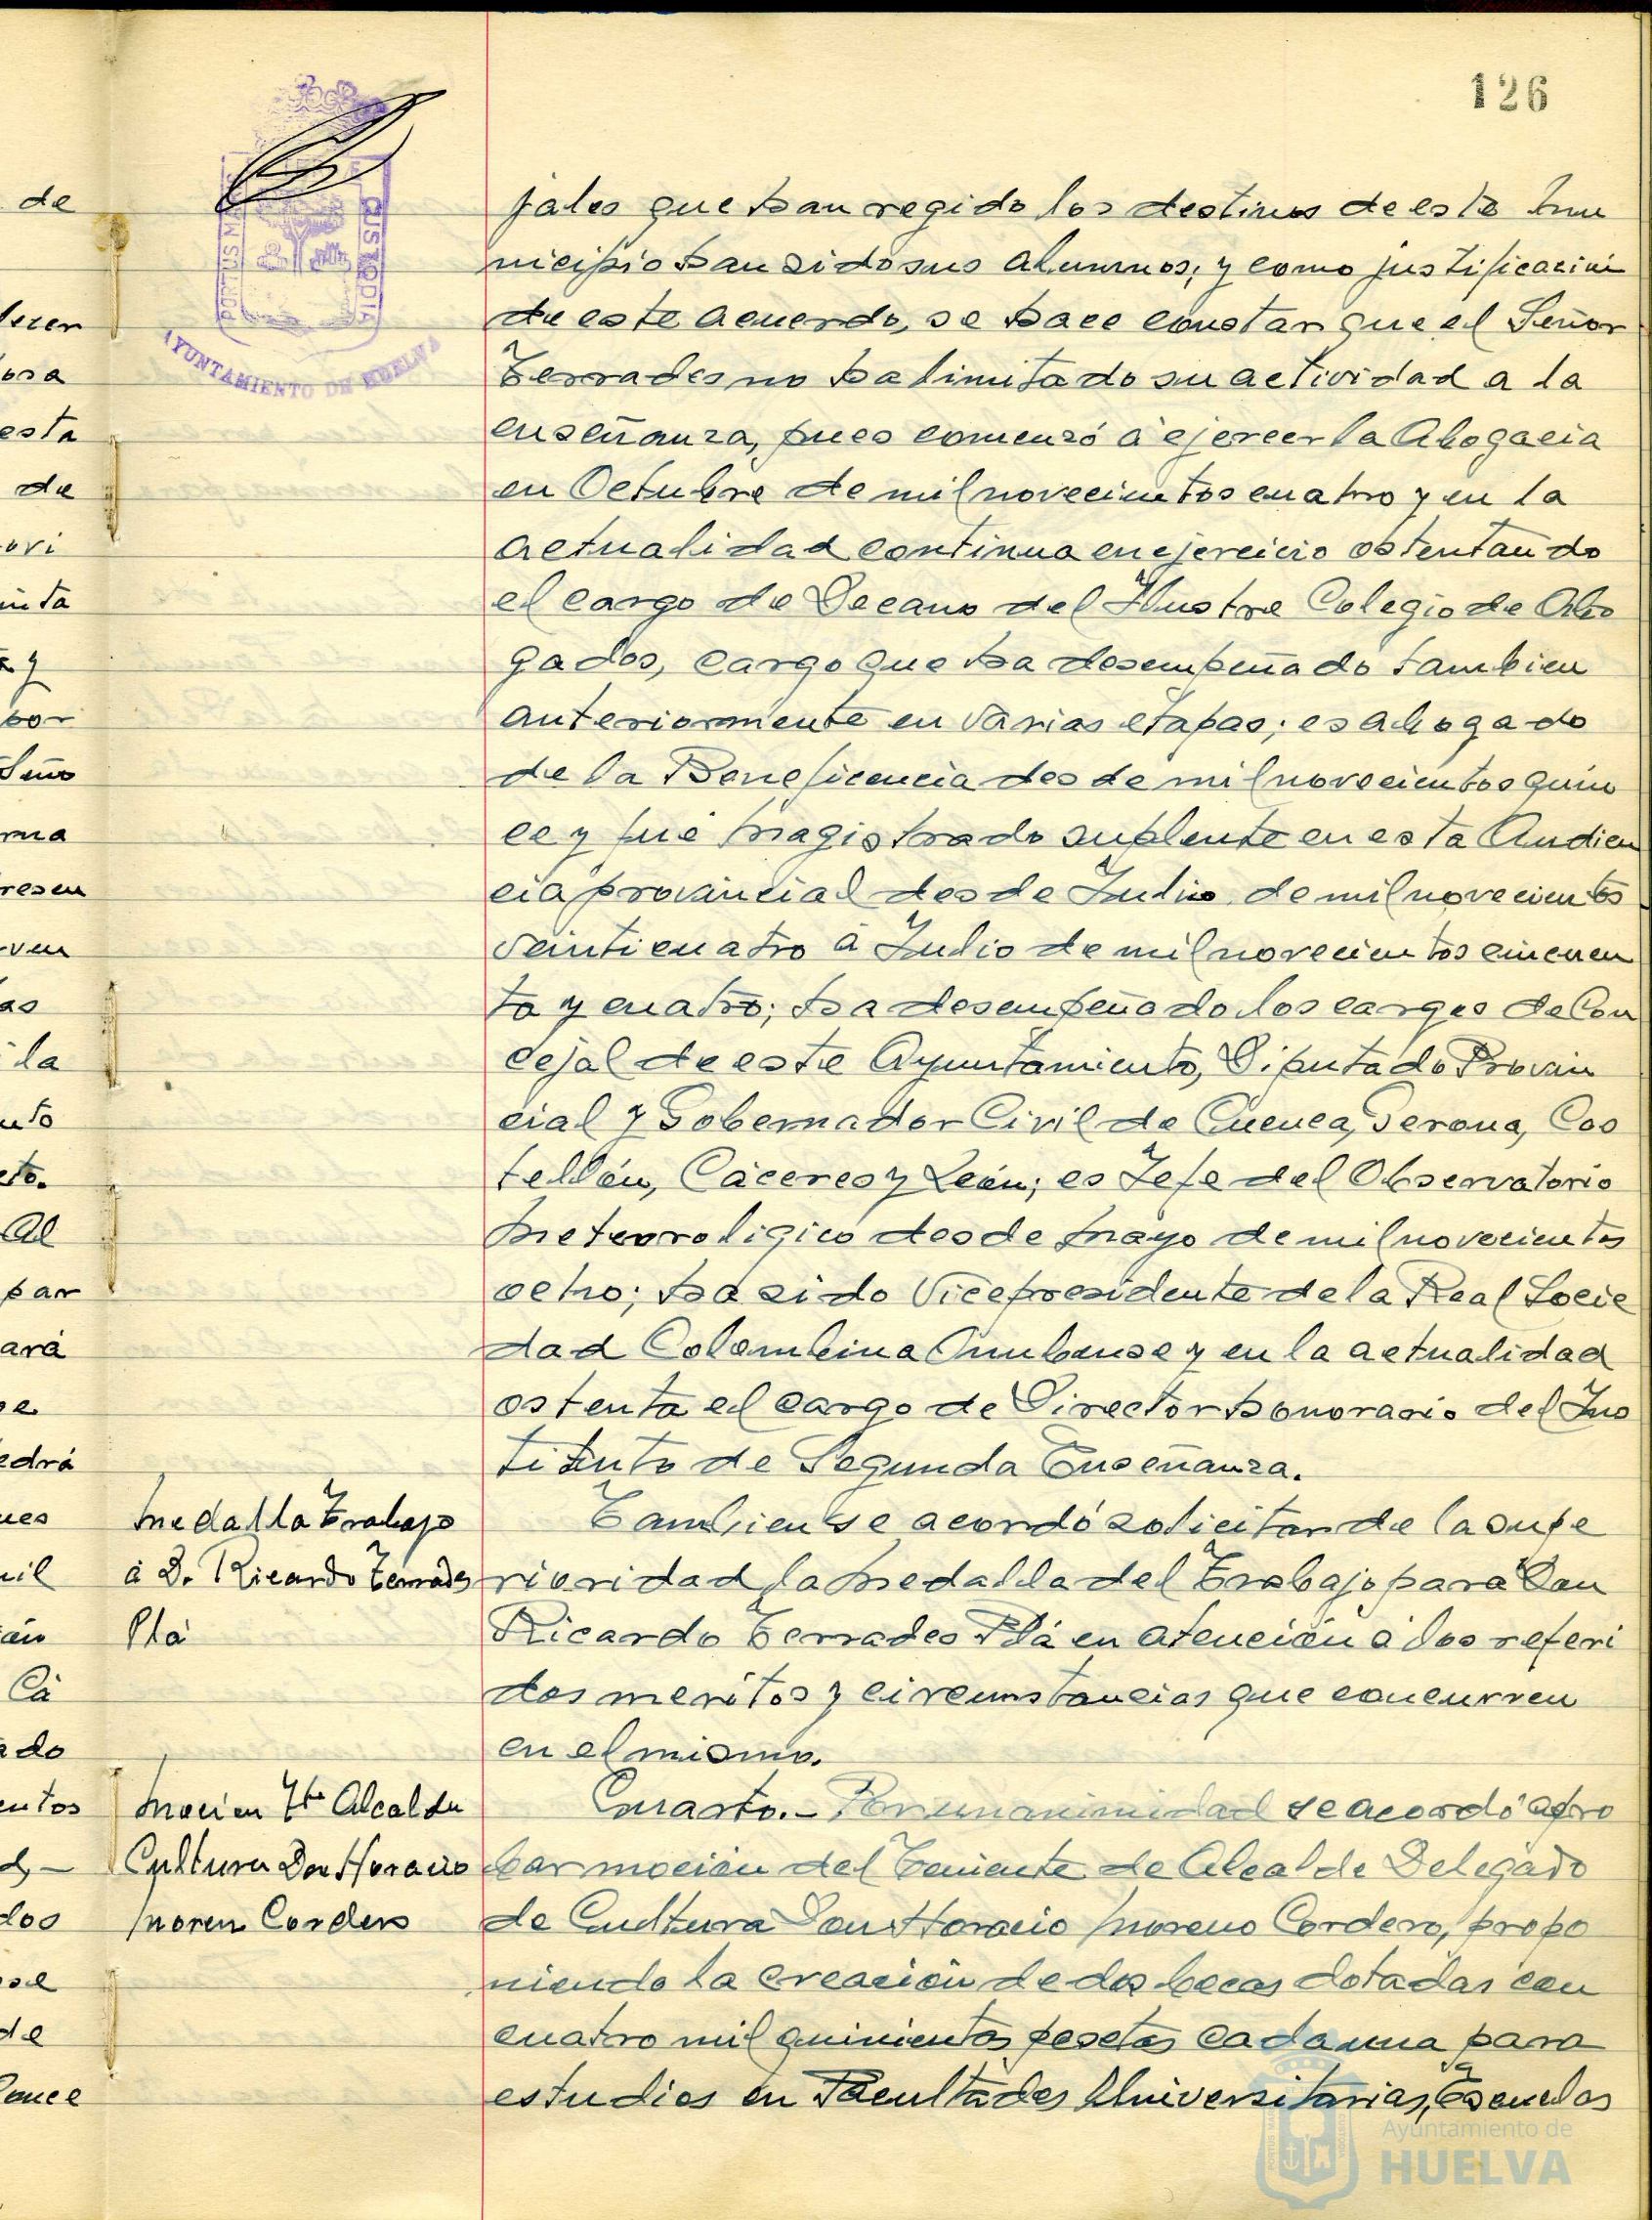 126
jales que han regido los destinos de este mu
nicipio han sido sus alumnos; y como justificación
de este acuerdo, se hace constar que el Señor
Terrades no ha limitado su actividad a la
enseñanza, pues comenzó á ejercer la Abogacia
en Octubre de mil novecientos cuatro y en la
actualidad continua en ejercicio ostentando
el cargo de Decano del Ilustre Colegio de Abo
gados, cargo que ha desempeñado tambien
anteriormente en varias etapas; es abogado
de la Beneficencia desde mil novecientos quin
ce y fué Magistrado suplente en esta Audien
cia provincial desde Julio de mil novecientos
veinticuatro á Julio de mil novecientos cincuen
ta y cuatro; ha desempeñado los cargos de Con
cejal de este Ayuntamiento, Diputado Provin
cial y Gobernador Civil de Cuenca, Gerona, Cas
tellón, Cáceres y León; es Jefe del Observatorio
Meteorologico desde Mayo de mil novecientos
ocho; ha sido Vicepresidente de la Real Socie
dad Colombina Onubense y en la actualidad
ostenta el cargo de Director honorario del Ins
tituto de Segunda Enseñanza.
Medalla Trabajo
á D. Ricardo Terrades
Plá
Tambien se acordó solicitar de la supe
rioridad la Medalla del Trabajo para Don
Ricardo Terrades Plá en atención á los referi
dos meritos y circunstancias que concurren
en el mismo.
Moción Tte Alcalde
Cultura Don Horacio
Moren Cordero
Cuarto.- Por unanimidad se acordó apro
bar moción del Teniente de Alcalde Delegado
de Cultura Don Horacio Moreno Cordero, propo
niendo la creación de dos becas dotadas con
cuatro mil quinientas pesetas cada una para
estudios en Facultades Universitarias, Escuelas
PORTUS MARIS
CUSTODIA
AYUNTAMIENTO DE HUELVA
de
esta
de
ori
y
por
ma
resen
ven
as
la
Al
par
ará
edrá
Cá
ado
entos
dos
de
Ponce
Ayuntamiento de
HUELVA